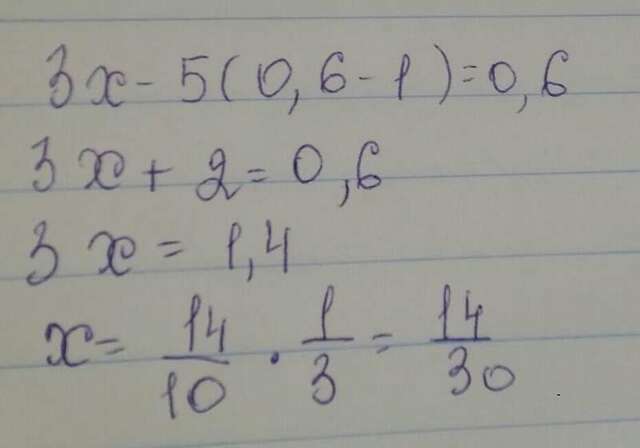 3x - 5(0,6 - 1) = 0,6
3x + 2 = 0,6
3x = 1,4
x = 14/10 · 1/3 = 14/30